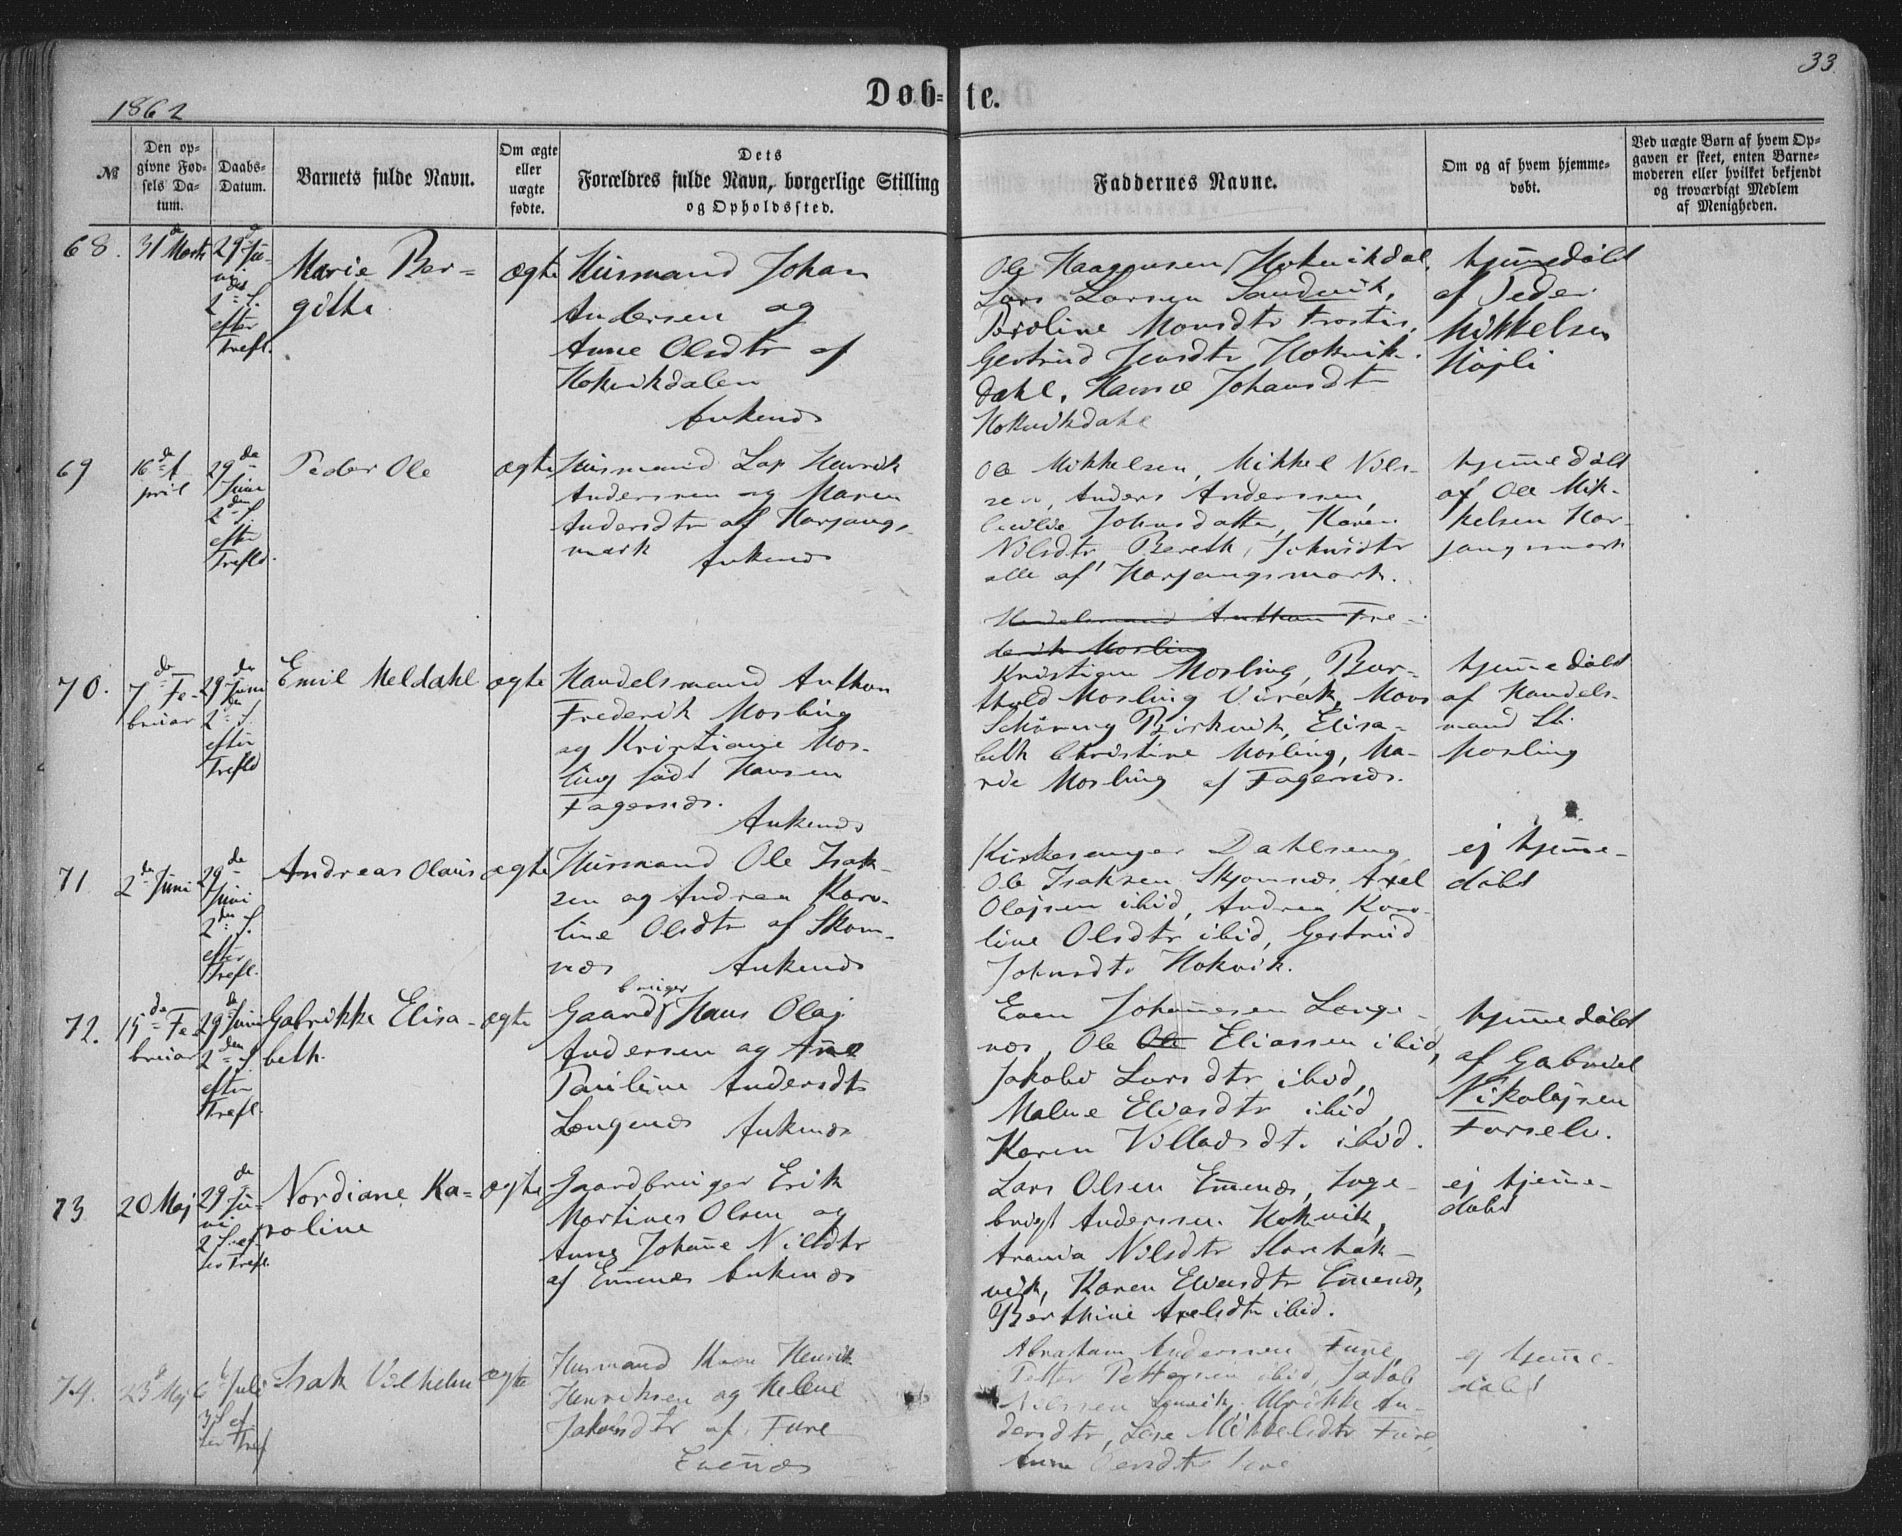 33.
1862
Døb-te.
№
Den op-
givne Fød-
sels Da-
tum.
Daabs-
Datum.
Barnets fulde Navn.
Om ægte
eller
uægte
fødte.
Dets
Forældres fulde Navn, borgerlige Stilling
og Opholdssted.
Faddernes Navne.
Om og af hvem hjemme-
døbt.
Ved uægte Børn af hvem Op-
gaven er skeet, enten Barne-
moderen eller hvilket bekjendt
og troværdigt Medlem
af Menigheden.
68.
31 Marts
29 Ju-
ni
2 S.
efter
Trefl.
Marie Ber-
githe
ægte
Husmand Johan
Andersen og
Anne Olsdtr af
Hokvikdalen
Ankenæs
Ole Haagensen Hokvikdal,
Lars Larsen Sandvik,
Monsdtr
Gertrud Jensdtr Hokvik-
dahl, Johansdtr
Hokvikdahl
hjemedøbt
af Peder
Mikkelsen
69
16de A
pril
29de
Juni
2den S.
efter
Trefld.
Peder Ole
ægte
Husmand Lap Henrik
Anderssen og Maren
Andersdtr af Harjangs-
mark
Ankenæs
Ole Mikkelsen, Mikkel Nils-
sen, Anders Anderssen,
Johnsdatter, Karen
Nilsdtr, Bereth Johnsdtr
alle af Harjangsmark.
hjemedøbt
af Ole Mik-
kelsen Har-
jangsmark
70.
7de Fe-
bruar
29de Juni
2den S.
efter
Trefld
Emil Meldahl
ægte
Handelsmand Anthon
Frederik Mosling
og Kristiane Mos-
ling født Hansen
Fagernæs.
Ankenæs
Handelsmand Anthon Fre-
derik Mosling
Kristian Mosling, Bar-
thold Mosling Virak, Mons
Schöning Birkvik, Elisa-
beth Christine Mosling, Ma-
rie Mosling af Fagernæs.
hjemedøbt
af Handels-
mand
Mosling
71
2den Juni
29de
Juni
2den S.
efter
Trefl.
Andreas Olaus
ægte
Husmand Ole Isak-
sen og Andrea Karo-
line Olsdtr af Skom-
næs
Ankenæs
Kirkesanger Dahlseng
Ole Isaksen Skjomnæs, Axel
Olajsen ibid, Andrea Karo-
line Olsdtr ibid, Gertrud
Johnsdtr Hokvik.
ej hjeme-
døbt
72.
15de Fe
bruar
29de Juni
2den S.
efter
Trefl.
Gabrikke Elisa-
beth.
ægte
bruger
Gaard Hans Olaj
Andersen og Ane
Pauline Andersdtr
Lengenæs Ankenæs
Even Johanesen Lenge-
næs, Ole Ole Eliassen ibid,
Jakobe Larsdtr ibid,
Malene Eliasdtr ibid,
Karen Villadsdt. ibid.
hjemedøbt
af Gabriel
Nikolajsen
Forselv.
73
20 Maj
29de Ju-
ni
2 S. ef-
ter Trefl.
Nordiane Ka-
roline
ægte
Gaardbruger Erik
Martines Olsen og
Anne Johane Nilsdtr
af Emenæs Ankenæs
Lars Olsen Emenæs, Inge-
brigt Anderssen Hokvik,
Arania Nilsdtr Storehok-
vik, Karen Eliasdtr Emenæs,
Berthine Axelsdtr ibid.
ej hjeme-
døbt
74.
23de Maj
6 Juli
3 S. ef-
ter Tref
Isak Vilhelm
ægte
Husmand Henrik
Henriksen og Helene
Jakobsdtr af Fure
Evenæs
Abraham Anderssen Fure,
Petter Pettersen ibid, Jakob
Nilssen Ulrikke An-
dersdtr, Lene Mikkelsdtr Fure,
Anne Fure
ej hjeme-
døbt